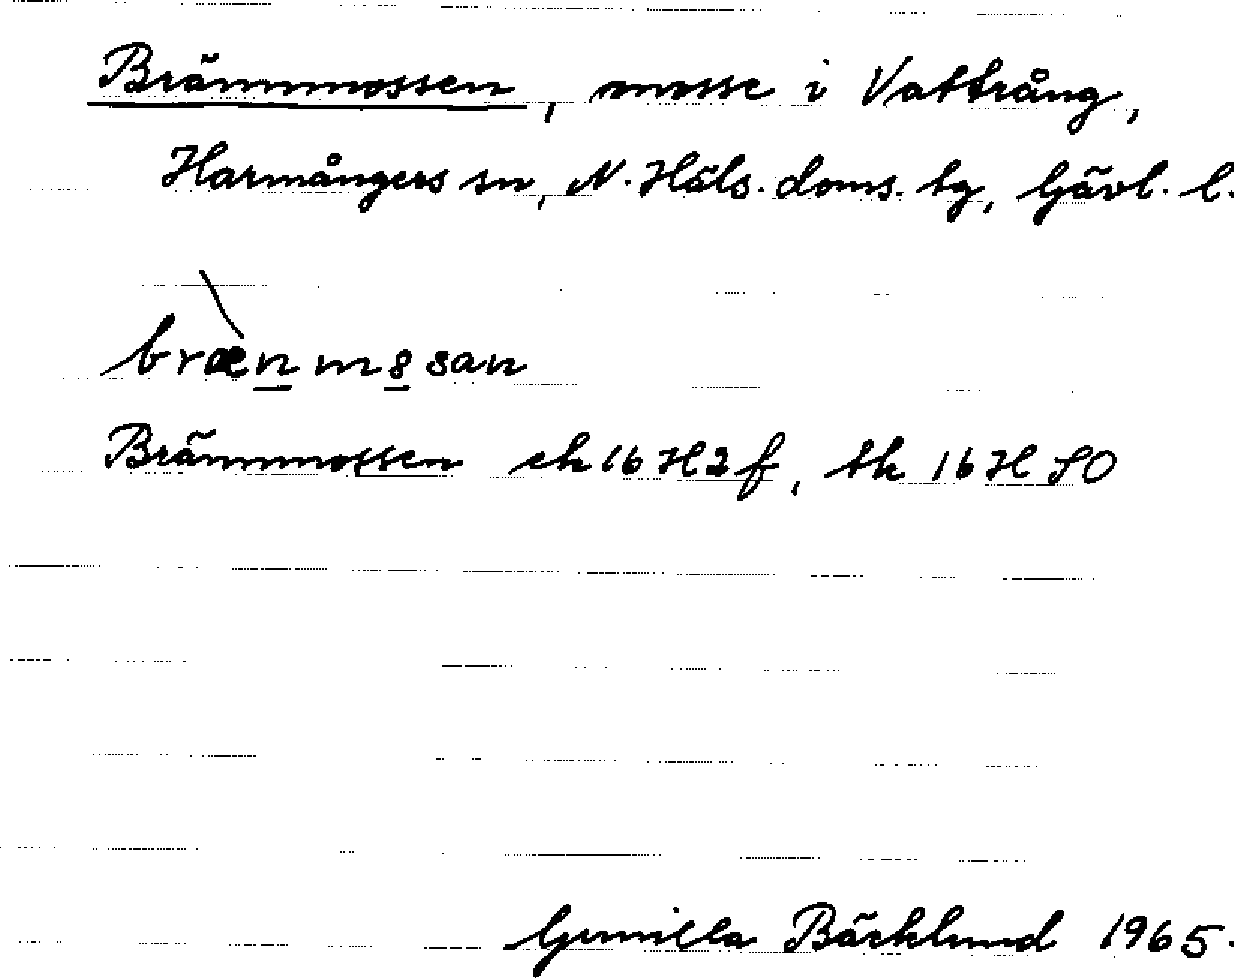 Brännmossen, mosse i Vattrång,
Harmångers sn, N. Häls. doms. tg, Gävl. l.
brænm8san
Brännmossen ek 16 H 2 f, tk 16 H SO
Gunilla Bäcklund 1965.